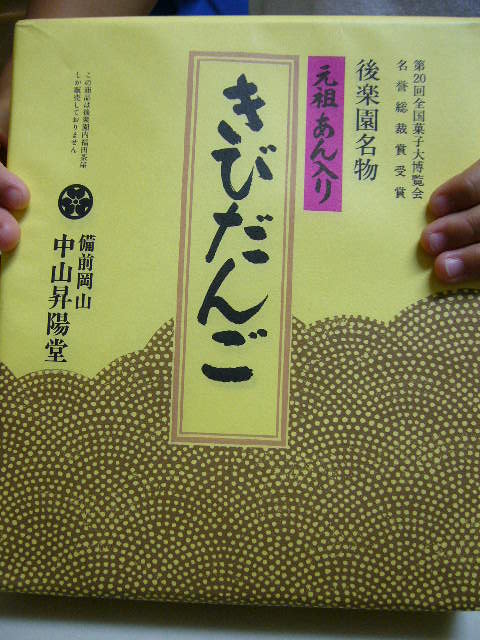 第20回全国菓子大博覧会
名誉総裁賞受賞
後楽園名物
元祖あん入り
きびだんご
この商品は後楽園内福田茶屋
しか販売しておりません
備前岡山
中山昇陽堂